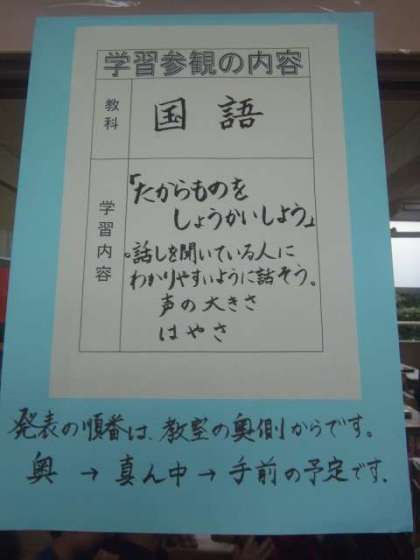 学習参観の内容
教科
国語
学習内容
「たからものを
しょうかいしよう」
。話しを聞いている人に
わかりやすいように話そう。
声の大きさ
はやさ
発表の順番は、教室の奥側からです。
奥→真ん中→手前の予定です。